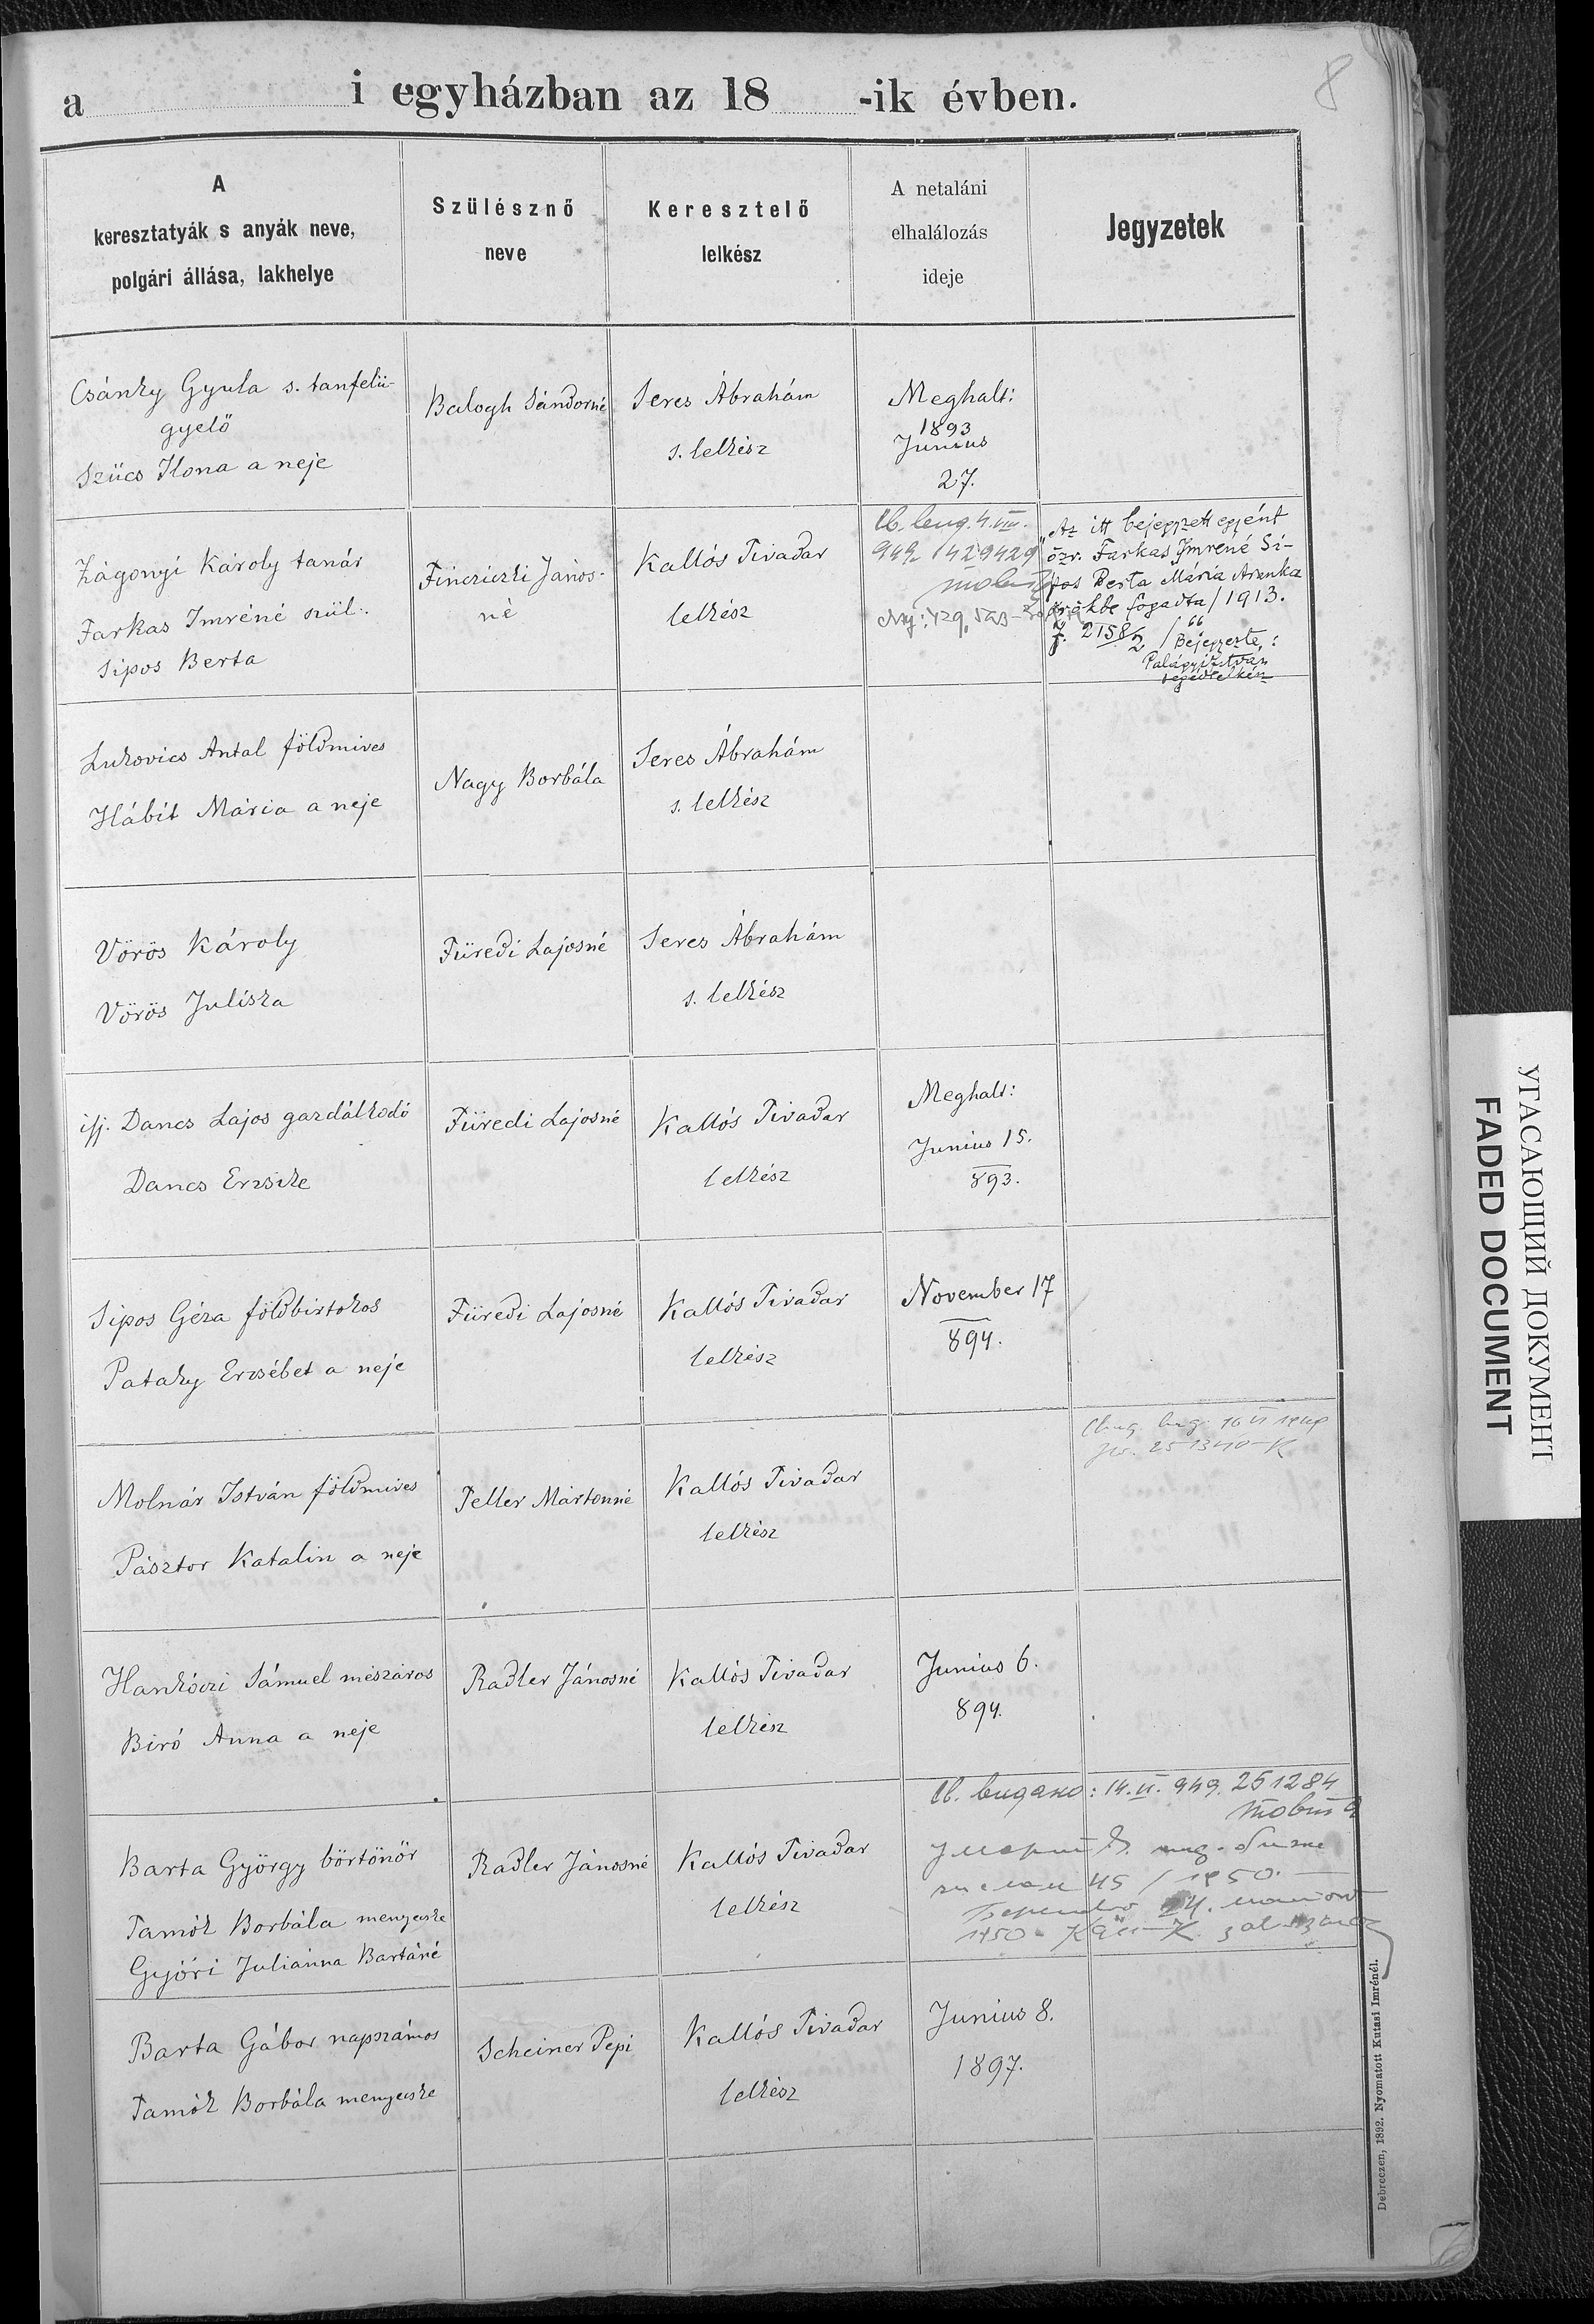 a i egyházban az 18 -ik évben.
8
A
keresztatyák s anyák neve,
polgári állása, lakhelye
Szülésznő
neve
Keresztelő
lelkész
A netaláni
elhalálozás
ideje
Jegyzetek
Csánky Gyula s. tanfelü-
gyelő
Szücs Ilona a neje
Balogh Sándorné
Seres Ábrahám
s. lelkész
Meghalt:
1893
Junius
27.
Zágonyi Károly tanár
Farkas Imréné szül.
Sipos Berta
Fincziczki János-
né
Kallós Tivadar
lelkész
949 1429429
„Az itt bejegyzett egyént
özv. Farkas Imréné Si-
pos Berta Mária Aranka
örökbe fogadta /1913.
2158/2 / 66
Bejegyezte:
Palágyi István
segédlelkész
Lukovics Antal földmives
Hábit Mária a neje
Nagy Borbála
Seres Ábrahám
s. lelkész
Vörös Károly
Vörös Juliska
Füredi Lajosné
Seres Ábrahám
s. lelkész
ifj. Dancs Lajos gazdálkodó
Dancs Erzsike
Füredi Lajosné
Kallós Tivadar
lelkész
Meghalt:
Junius 15.
893.
Sipos Géza földbirtokos
Pataky Erzsébet a neje
Füredi Lajosné
Kallós Tivadar
lelkész
November 17
894.
Molnár István földmives
Pásztor Katalin a neje
Teller Mártonné
Kallós Tivadar
lelkész
Hankóczi Sámuel mészáros
Biró Anna a neje
Radler Jánosné
Kallós Tivadar
lelkész
Junius 6.
894.
Barta György börtönőr
Tamók Borbála menyecske
Győri Juliánna Bartáné
Radler Jánosné
Kallós Tivadar
lelkész
видано: 14.VI. 949. 251284
45 / 1950.
24.
1950
Barta Gábor napszámos
Tamók Borbála menyecske
Scheiner Pepi
Kallós Tivadar
lelkész
Junius 8.
1897.
Debreczen, 1892. Nyomatott Kutasi Imrénél.
УГАСАЮЩИЙ ДОКУМЕНТ
FADED DOCUMENT